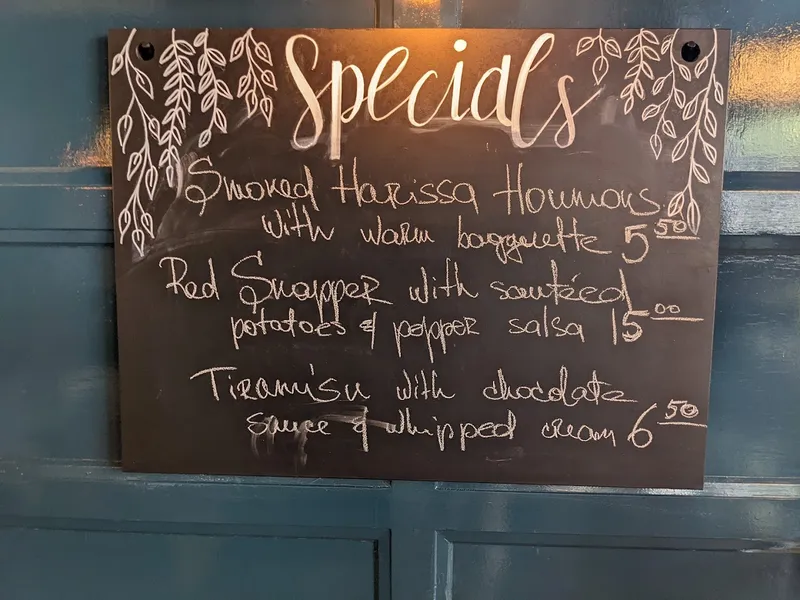 Specials
Smoked Harissa Houmous
with warm bagguette 5.50
Red Snapper with sautéed
potatoes & pepper salsa 15.00
Tiramisu with chocolate
sauce & whipped cream 6.50